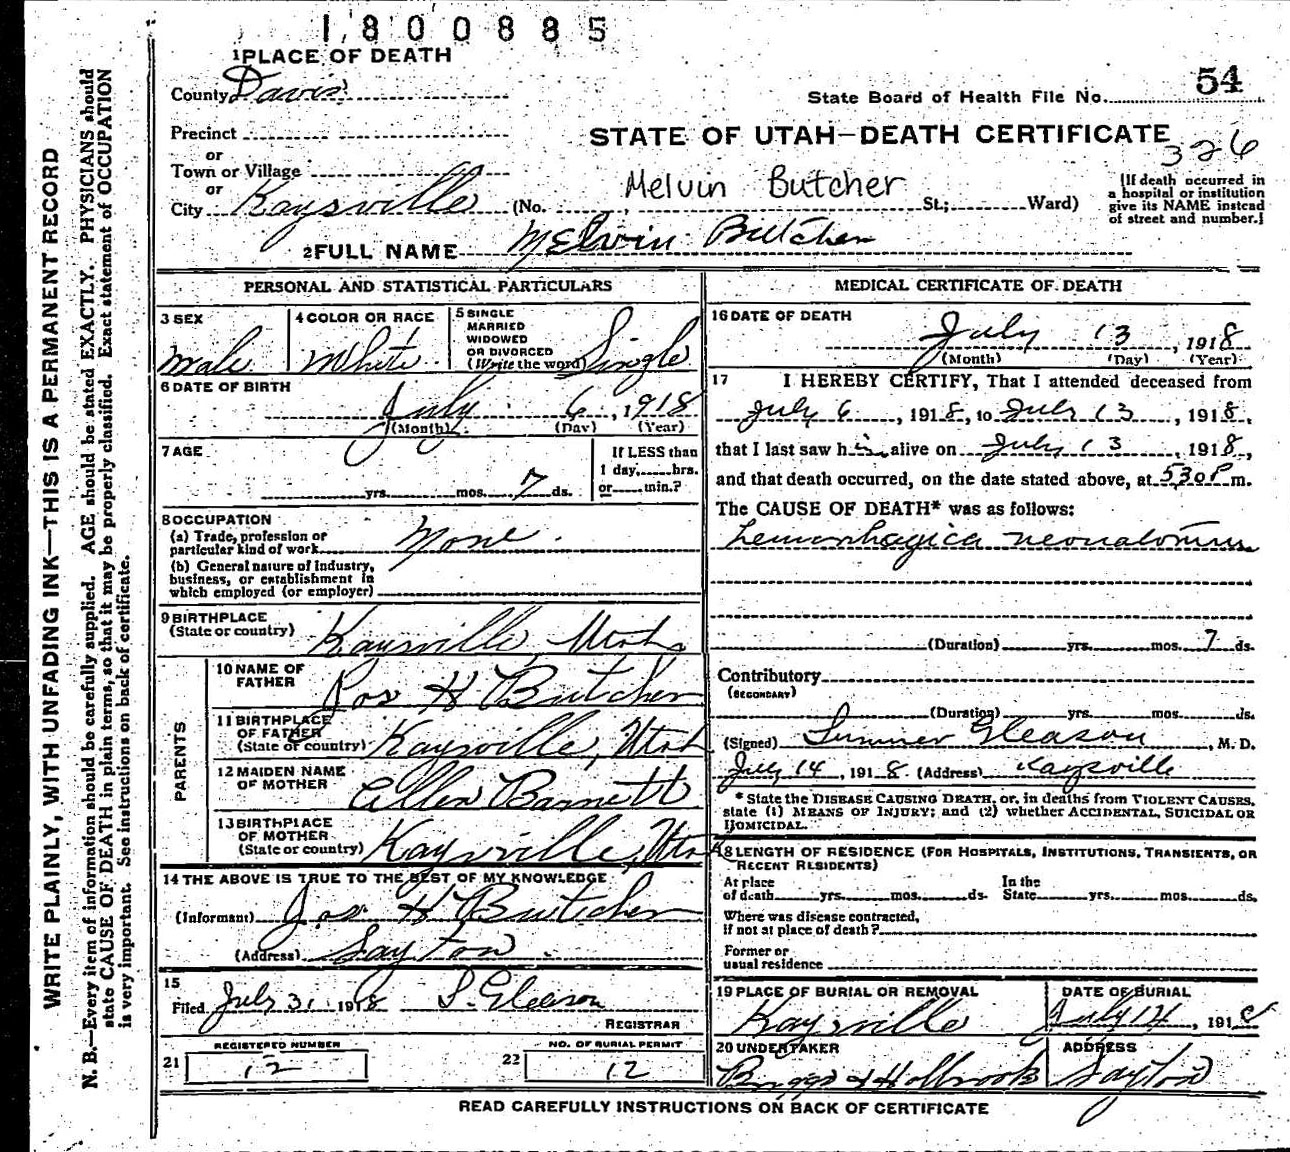 1800885
1 PLACE OF DEATH
County Davis
54
State Board of Health File No.
Precinct
STATE OF UTAH—DEATH CERTIFICATE
326
or
Town or Village
or
City Kaysville (No. Melvin Butcher St.; Ward)
[If death occurred in
a hospital or institution
give its NAME instead
of street and number.]
2 FULL NAME Melvin Butcher
PERSONAL AND STATISTICAL PARTICULARS
3 SEX
Male
4 COLOR OR RACE
White
5 SINGLE
MARRIED
WIDOWED
OR DIVORCED
(Write the word) Single
6 DATE OF BIRTH
July 6, 1918
(Month) (Day) (Year)
7 AGE
yrs. mos. 7 ds.
If LESS than
1 day, hrs.
or min.?
8 OCCUPATION
(a) Trade, profession or
particular kind of work None
(b) General nature of Industry,
business, or establishment in
which employed (or employer)
9 BIRTHPLACE
(State or country) Kaysville, Utah
PARENTS
10 NAME OF
FATHER Jos H Butcher
11 BIRTHPLACE
OF FATHER
(State or country) Kaysville, Utah
12 MAIDEN NAME
OF MOTHER Ellen Barnett
13 BIRTHPLACE
OF MOTHER
(State or country) Kaysville, Utah
14 THE ABOVE IS TRUE TO THE BEST OF MY KNOWLEDGE
(Informant) Jos H Butcher
(Address) Layton
15
Filed July 31 1918 S. Gleason
REGISTRAR
REGISTERED NUMBER
21 12
NO. OF BURIAL PERMIT
22 12
MEDICAL CERTIFICATE OF DEATH
16 DATE OF DEATH
July 13, 1918
(Month) (Day) (Year)
17 I HEREBY CERTIFY, That I attended deceased from
July 6, 1918, to July 13, 1918,
that I last saw h alive on July 13, 1918,
and that death occurred, on the date stated above, at 530P m.
The CAUSE OF DEATH* was as follows:
hemorrhagica neonatorum
(Duration) yrs. mos. 7 ds.
Contributory
(SECONDARY)
(Duration) yrs. mos. ds.
(Signed) Sumner Gleason, M. D.
July 14, 1918. (Address) Kaysville
* State the DISEASE CAUSING DEATH, or, in deaths from VIOLENT CAUSES,
state (1) MEANS OF INJURY; and (2) whether ACCIDENTAL, SUICIDAL OR
HOMICIDAL.
18 LENGTH OF RESIDENCE (FOR HOSPITALS, INSTITUTIONS, TRANSIENTS, OR
RECENT RESIDENTS)
At place In the
of death yrs. mos. ds. State yrs. mos. ds.
Where was disease contracted,
if not at place of death?
Former or
usual residence
19 PLACE OF BURIAL OR REMOVAL
Kaysville
DATE OF BURIAL
July 14, 191
20 UNDERTAKER
Briggs & Holbrook
ADDRESS
Layton
READ CAREFULLY INSTRUCTIONS ON BACK OF CERTIFICATE
WRITE PLAINLY, WITH UNFADING INK—THIS IS A PERMANENT RECORD
N. B.—Every item of information should be carefully supplied. AGE should be stated EXACTLY. PHYSICIANS should
state CAUSE OF DEATH in plain terms, so that it may be properly classified. Exact statement of OCCUPATION
is very important. See instructions on back of certificate.